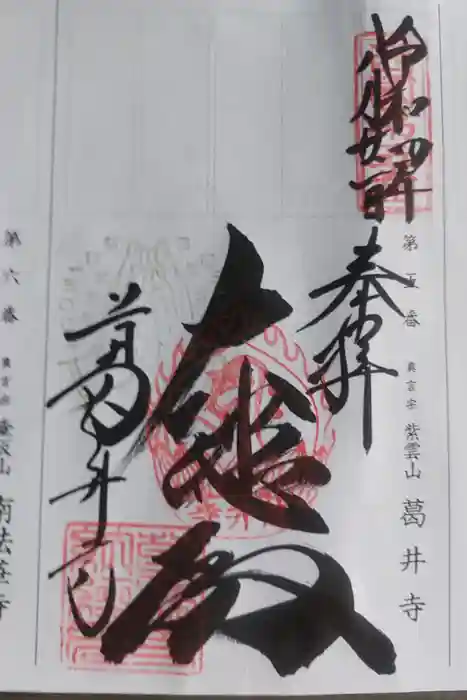 第五番 眞言宗 紫雲山 葛井寺
令和四年
奉拝
大悲殿
葛井寺
第六番 眞言宗 壷阪山 南法華寺